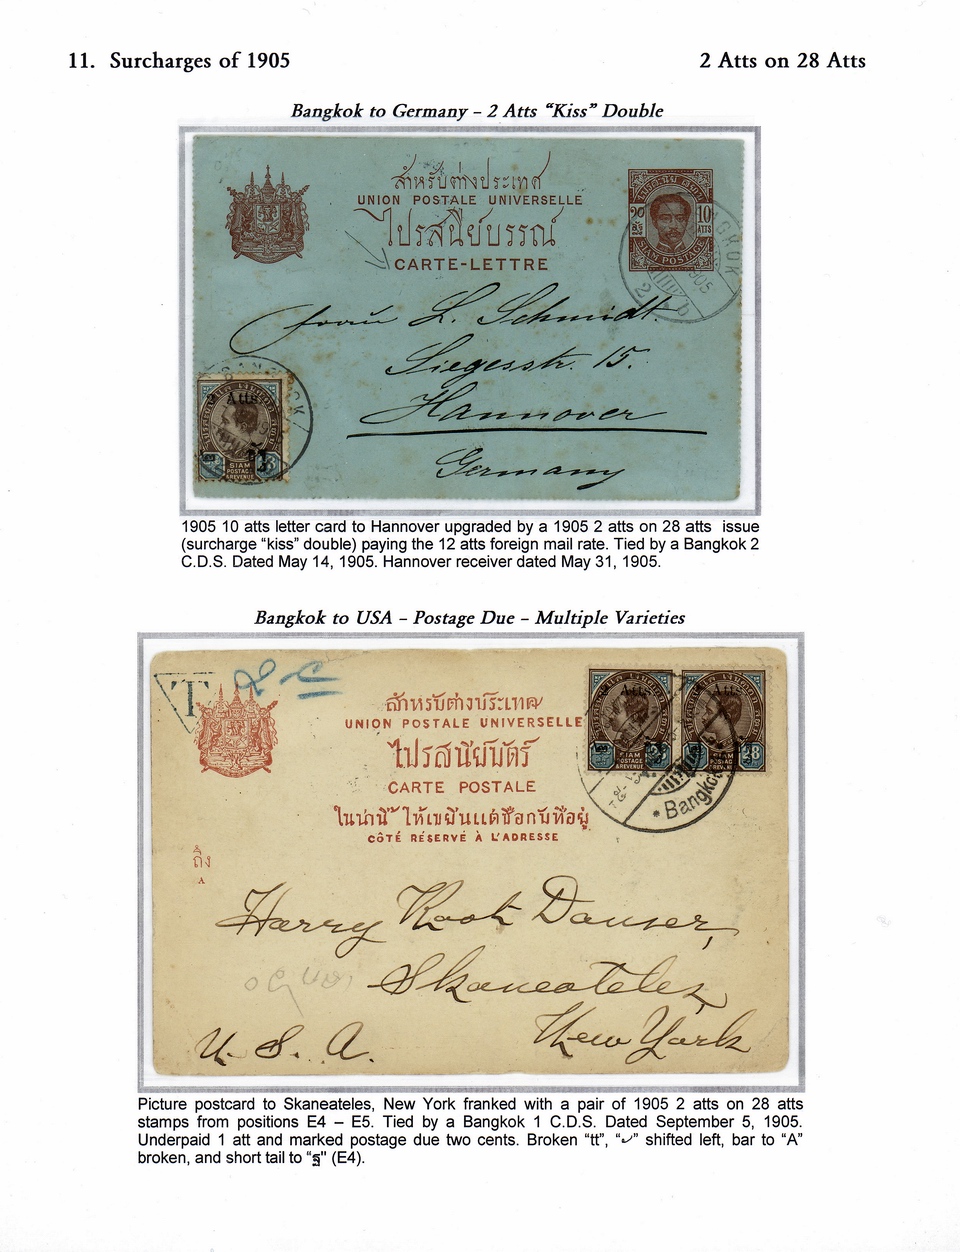 11. Surcharges of 1905
2 Atts on 28 Atts
Bangkok to Germany – 2 Atts “Kiss” Double
สำหรับต่างประเทศ
UNION POSTALE UNIVERSELLE
ไปรสนีย์บรรณ์
CARTE-LETTRE
10
ATTS
SIAM POSTAGE
BANGKOK
1905
2
Frau L. Schmidt.
Siegesstr. 15.
Hannover
Germany
BANGKOK
Atts
SIAM
POSTAGE
& REVENUE
1905 10 atts letter card to Hannover upgraded by a 1905 2 atts on 28 atts issue
(surcharge “kiss” double) paying the 12 atts foreign mail rate. Tied by a Bangkok 2
C.D.S. Dated May 14, 1905. Hannover receiver dated May 31, 1905.
Bangkok to USA – Postage Due – Multiple Varieties
T
2 c
สำหรับต่างประเทศ
UNION POSTALE UNIVERSELLE
ไปรสนีย์บัตร์
CARTE POSTALE
ในน่านี้ ให้เขียนแต่ชื่อกับที่อยู่
CÔTÉ RÉSERVÉ À L'ADRESSE
Atts Atts
SIAM
POSTAGE
& REVENUE
28
Bangkok
ถึง
A
Harry Koot Danser,
Skaneateles,
New York
U. S. A.
Picture postcard to Skaneateles, New York franked with a pair of 1905 2 atts on 28 atts
stamps from positions E4 – E5. Tied by a Bangkok 1 C.D.S. Dated September 5, 1905.
Underpaid 1 att and marked postage due two cents. Broken “tt”, “ ” shifted left, bar to “A”
broken, and short tail to “ ” (E4).